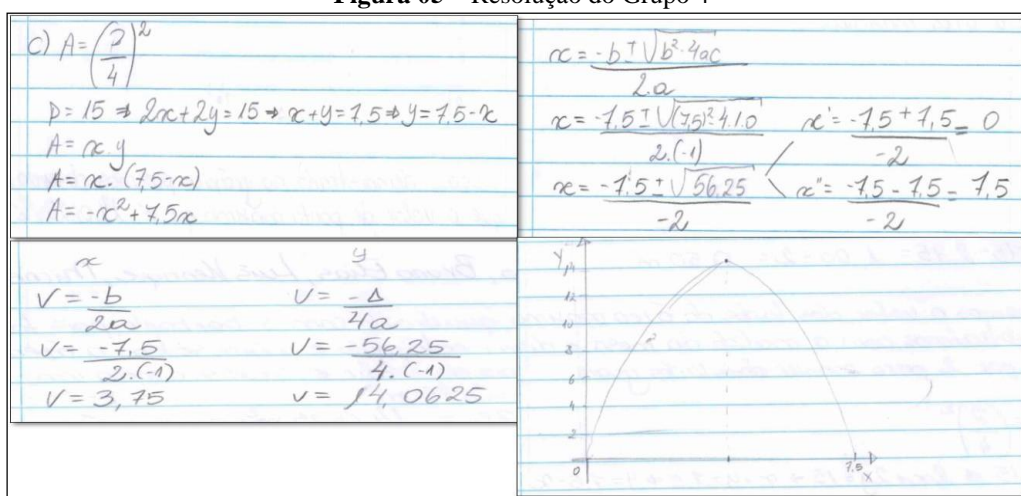 Figura 05 – Resolução do Grupo 4
C) A = (2/4)^2
p = 15 ⇒ 2x + 2y = 15 ⇒ x + y = 7,5 ⇒ y = 7,5 - x
A = x . y
A = x . (7,5 - x)
A = -x² + 7,5x
x = -b ± √b² - 4ac / 2.a
x = -7,5 ± √(7,5)² 4.1.0 / 2.(-1)
x' = -7,5 + 7,5 / -2 = 0
x = -7,5 ± √56,25 / -2
x'' = -7,5 - 7,5 / -2 = 7,5
x
V = -b / 2a
V = -7,5 / 2.(-1)
V = 3,75
y
V = -Δ / 4a
V = -56,25 / 4.(-1)
V = 14,0625
Y
14
12
10
8
6
4
2
0
7,5
X